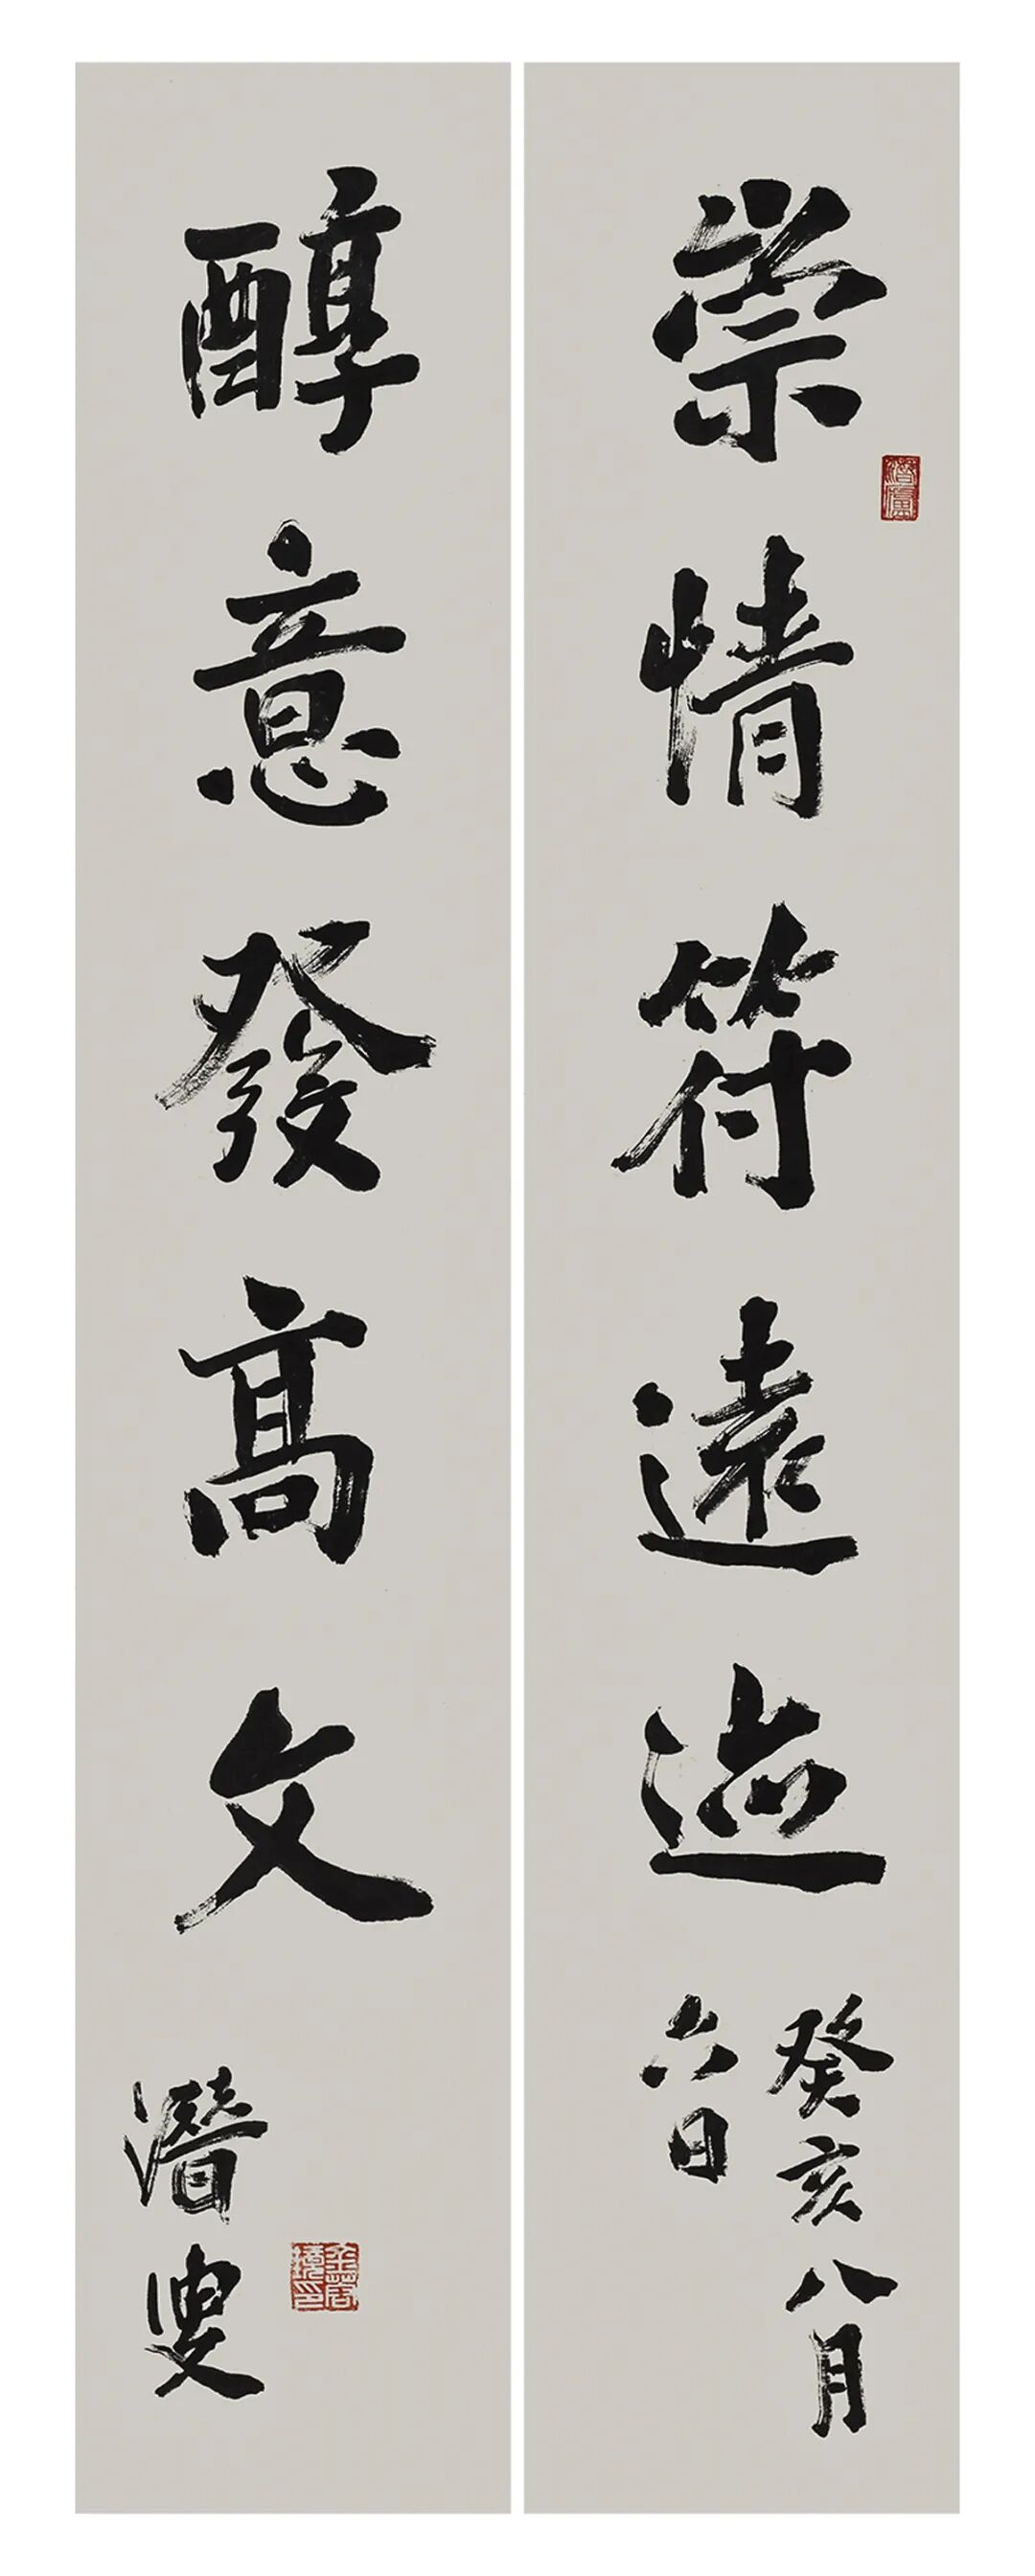 崇情符遠迹
癸亥八月
六日
潛廬
醇意發高文
潛叟